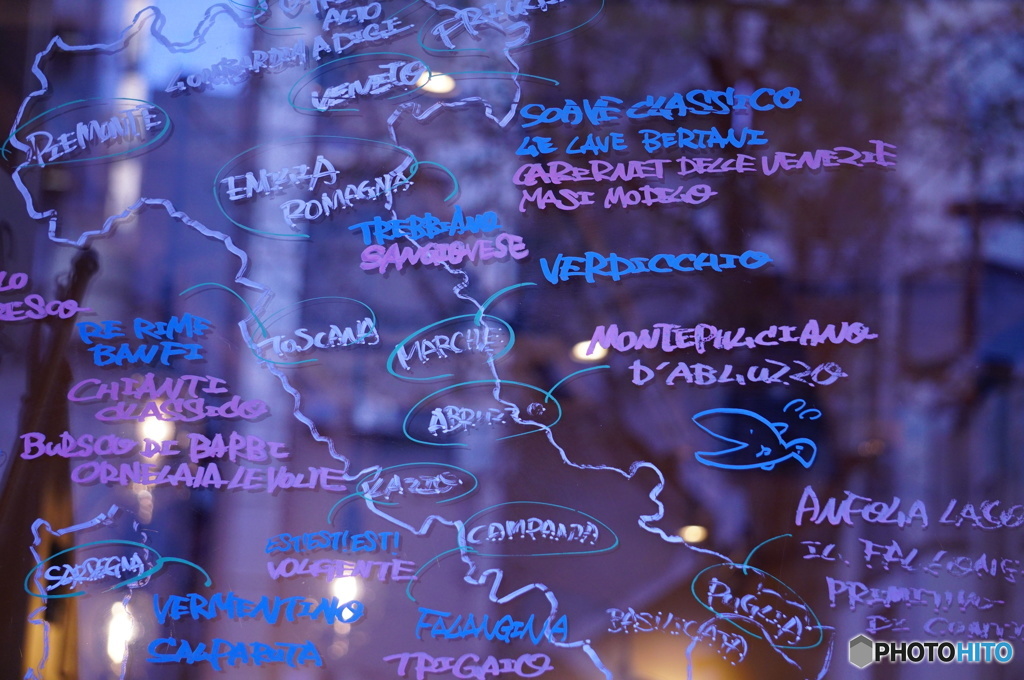 ALTO
LOMBARDIA ADIGE
VENETO
PIEMONTE
SOAVE CLASSICO
LE LAVE BERTANI
CABERNET DELLE VENEZIE
MASI MODELO
EMILIA
ROMAGNA
TREBBIANO
SANGIOVESE
VERDICCHIO
LO
RESCO
RE RIME
BANFI
TOSCANA
MARCHE
MONTEPULCIANO
D'ABLUZZO
CHIANTI
CLASSICO
ABRUZZO
BURSCO DI BARBI
ORNELAIA LE VOLTE
LAZIO
CAMPANIA
ANFORA LACO
IL FALCONE
PRIMITIVO
DI
SARDEGNA
EST!EST!EST!
VOLGENTE
PUGLIA
VERMENTINO
CALPARITA
FALANGINA
TRIGAIO
BASILICATA
PHOTOHITO